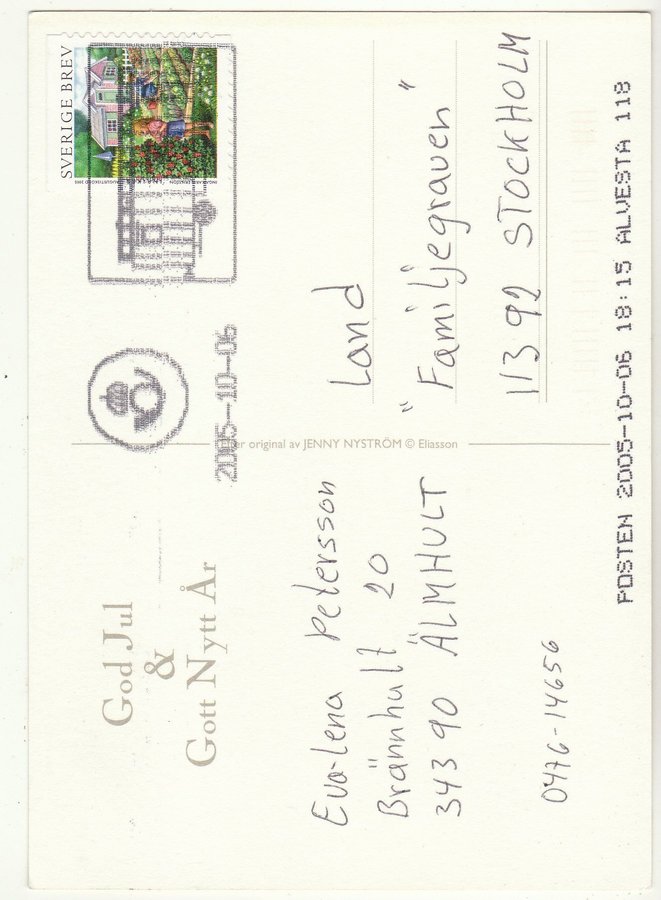 God Jul
&
Gott Nytt År
Eva-Lena Petersson
Brännhult 20
343 90 ÄLMHULT
0476-14656
Efter original av JENNY NYSTRÖM © Eliasson
2005-10-06
SVERIGE BREV
Land
"Familjegraven"
113 92 STOCKHOLM
POSTEN 2005-10-06 18:15 ALVESTA 118